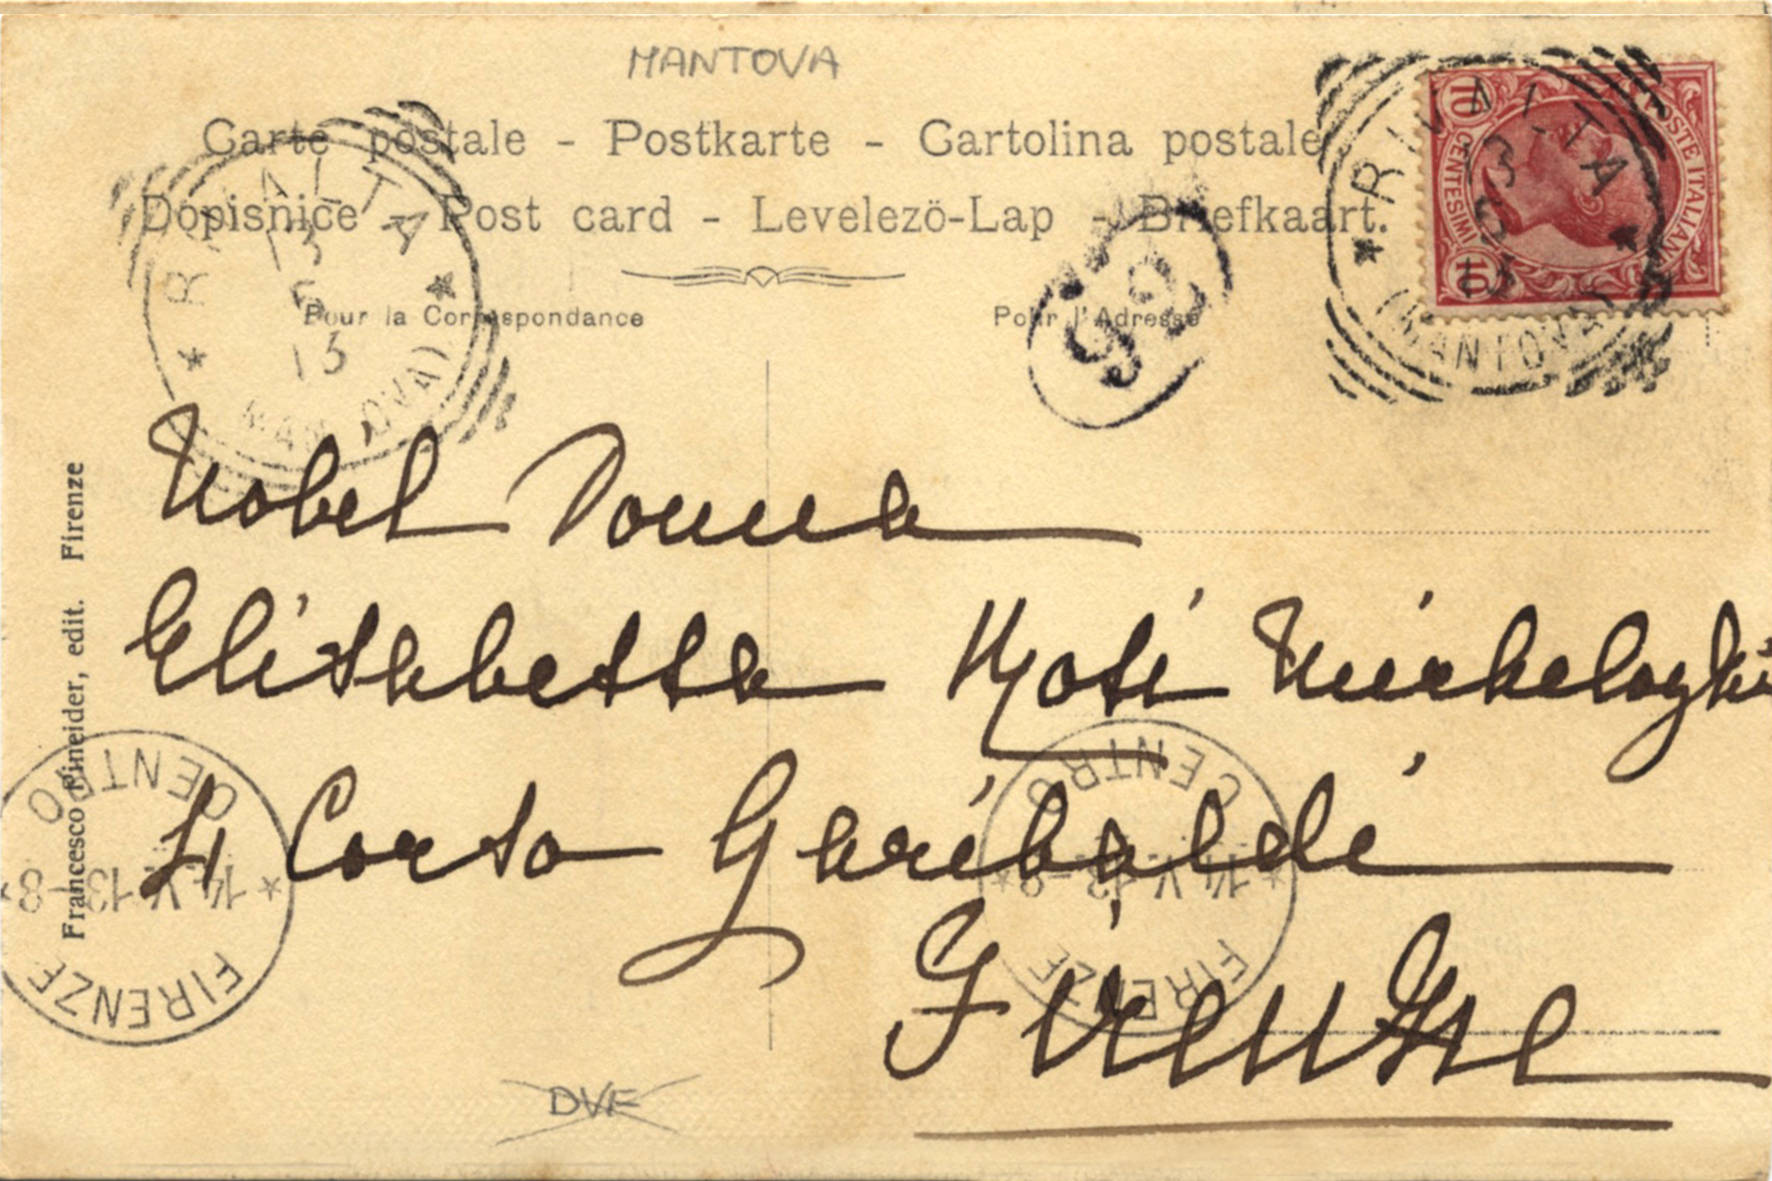 MANTOVA
Carte postale - Postkarte - Cartolina postale
Dopisnice - Post card - Levelezö-Lap - Briefkaart.
Pour la Correspondance
Pour l'Adresse
RIVALTA
13
5
13
(MANTOVA)
RIVALTA
13
5
13
(MANTOVA)
10 CENTESIMI 10
POSTE ITALIANE
92
Nobel Donna
Elisabetta
4 Corso Garibaldi
Firenze
Francesco Pineider, edit. Firenze
FIRENZE
14.V.13-8
CENTRO
FIRENZE
14.V.13-8
CENTRO
DVE